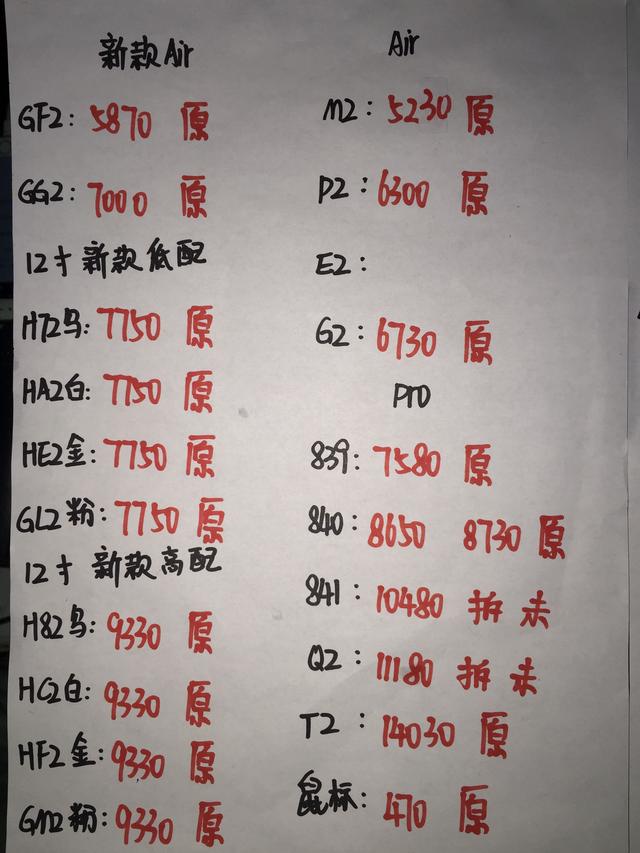 新款Air
GF2: 5870 原
GG2: 7000 原
12寸 新款低配
H72乌: 7750 原
HA2白: 7750 原
HE2金: 7750 原
GL2粉: 7750 原
12寸 新款高配
H82乌: 9330 原
HC2白: 9330 原
HF2金: 9330 原
GM2粉: 9330 原
Air
M2: 5230 原
P2: 6300 原
E2:
G2: 6730 原
Pro
839: 7580 原
840: 8650 8730 原
841: 10480 拆 未
Q2: 11180 拆 未
T2: 14030 原
鼠标: 470 原